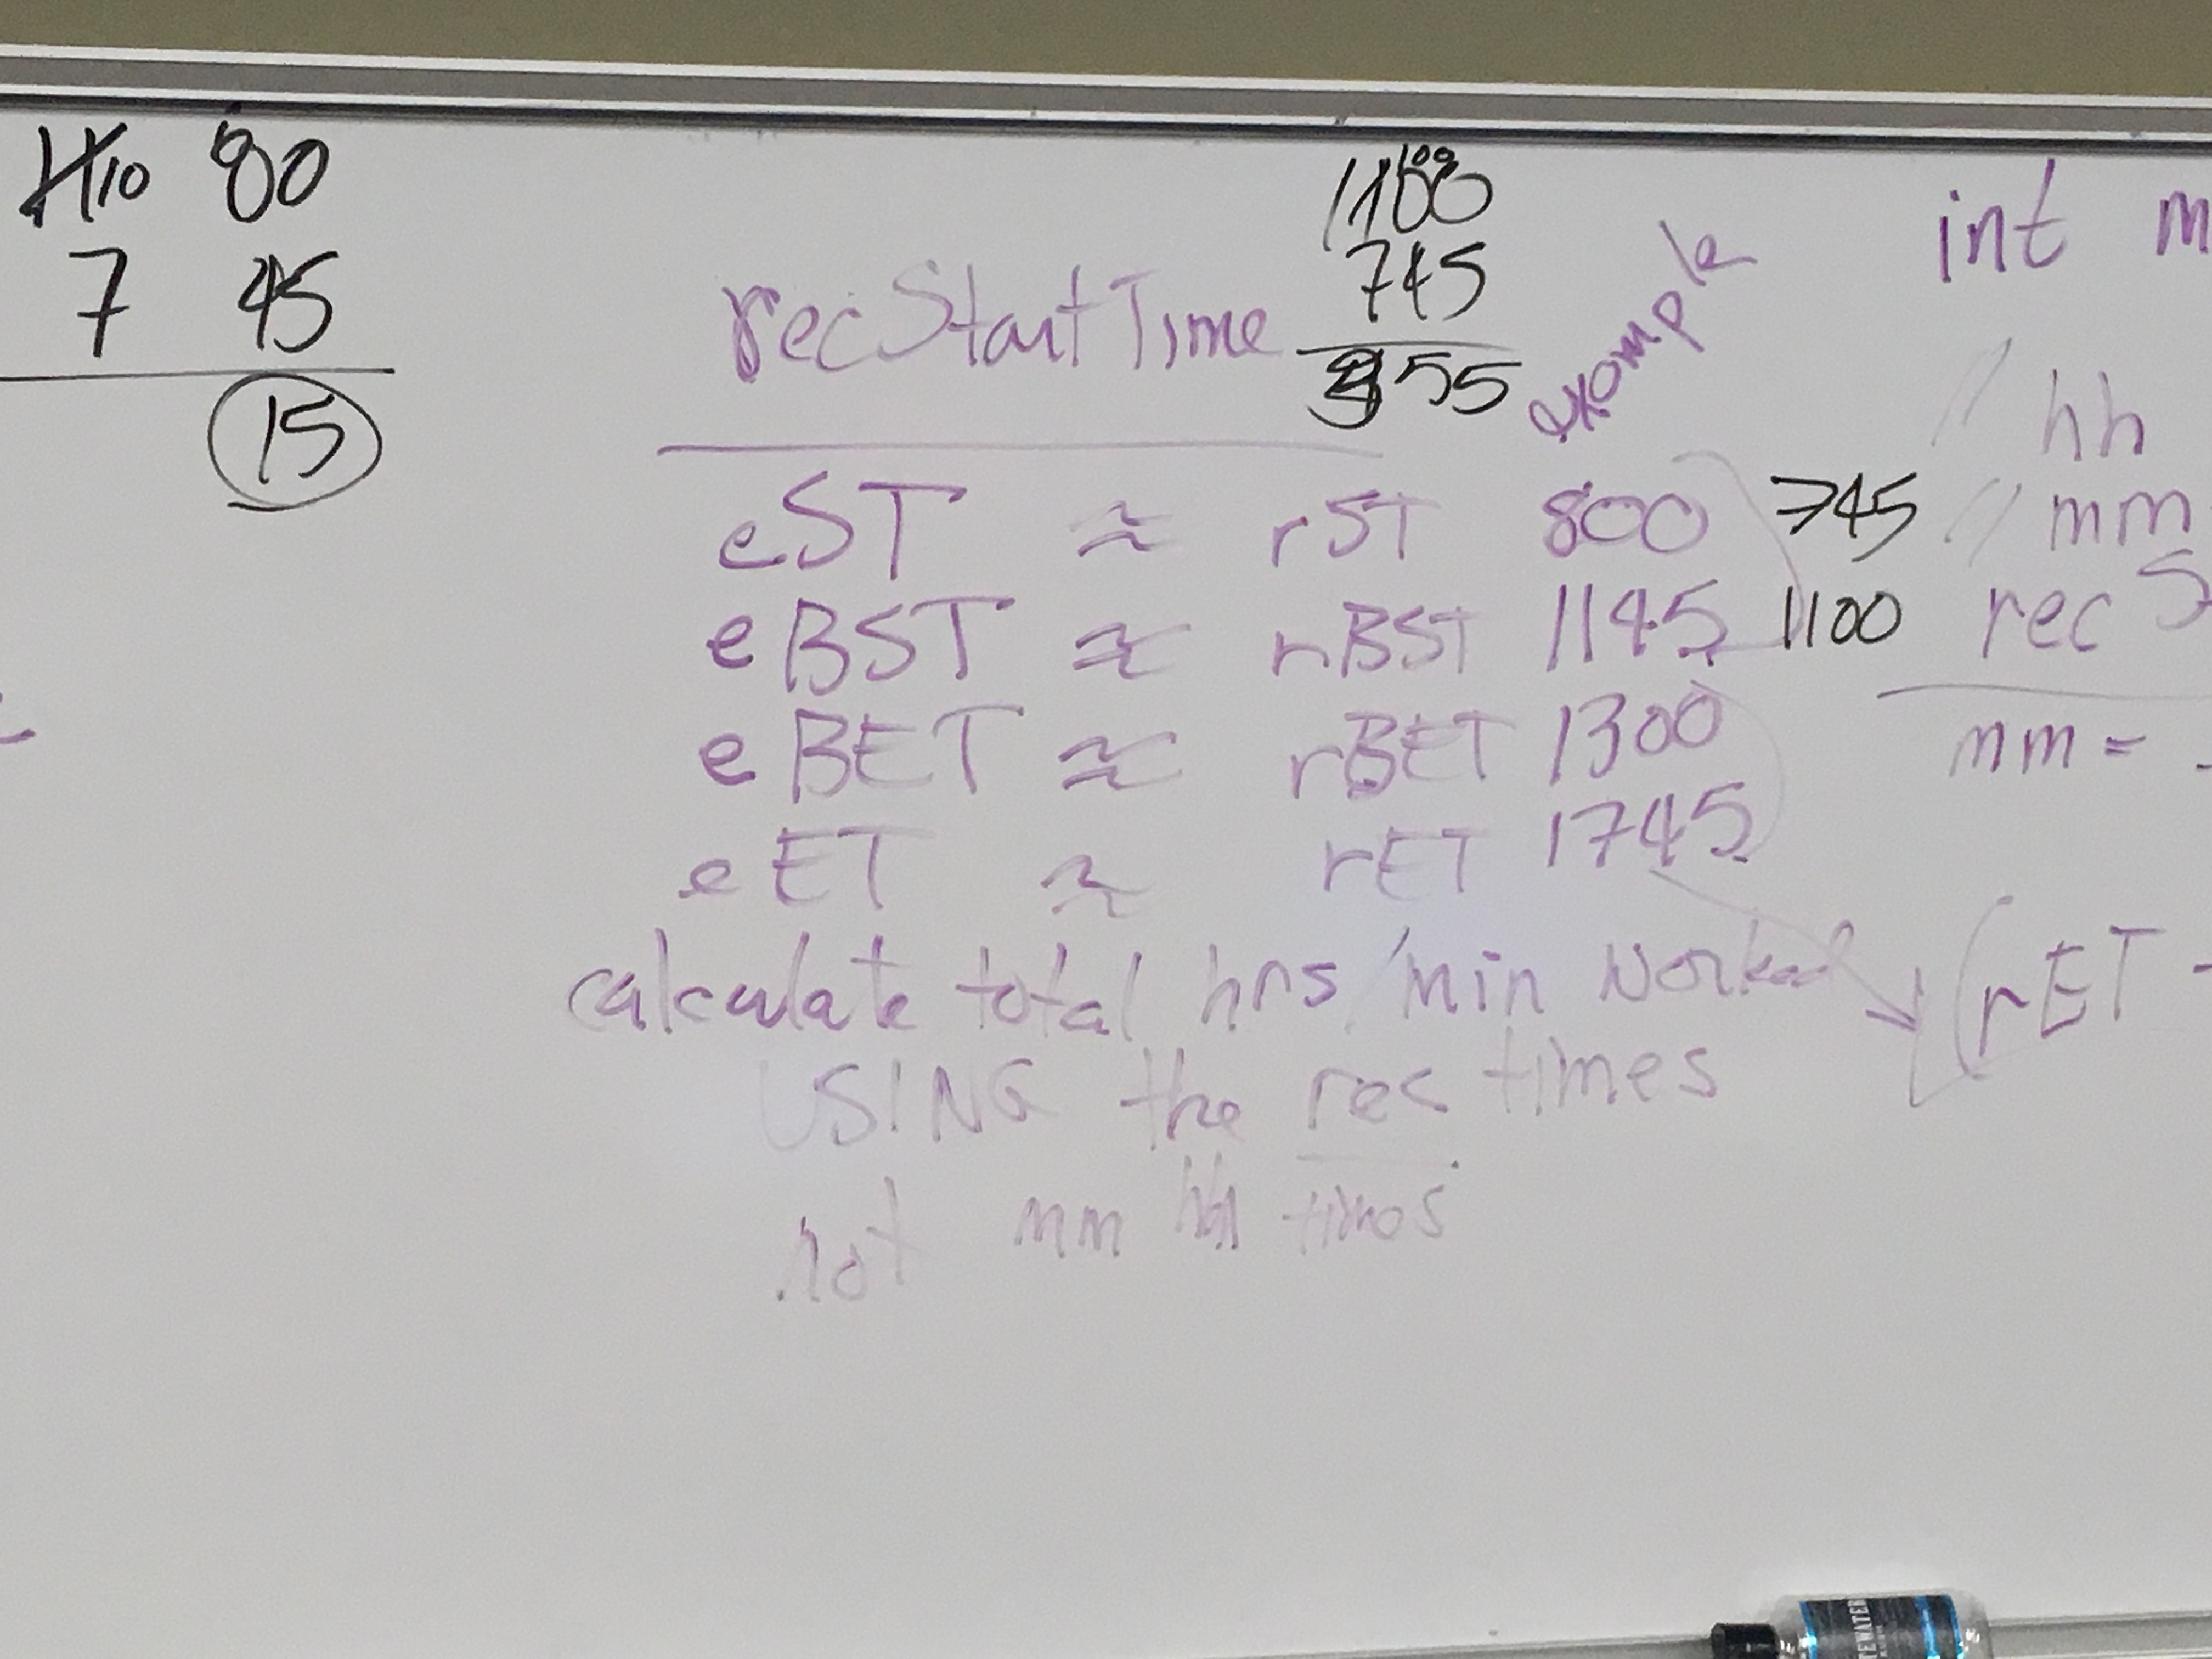 10 80
7 45
15
recStartTime
745
355
example
int m
// hh
// mm
rec S
mm =
eST ≈ rST 800 745
eBST ≈ rBST 1145 1100
eBET ≈ rBET 1300
eET ≈ rET 1745
calculate total hrs/min worked
(rET -
USING the rec times
not mm hh times